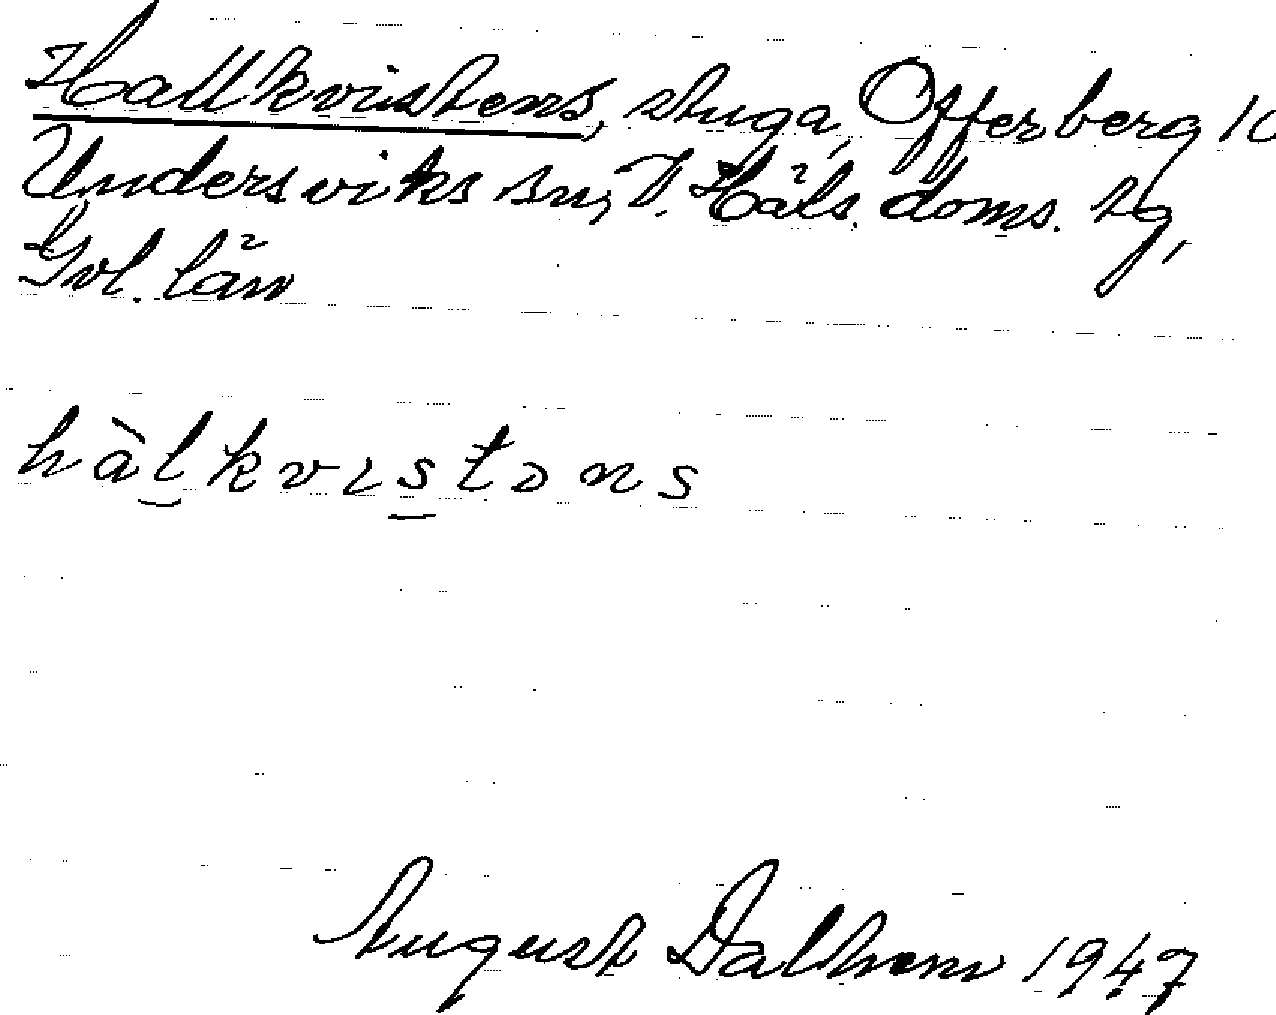 Hallkvistens, stuga, Offerberg 10
Undersviks sn, V. Häls. doms. tg,
Gvl. län
hàlkvɩstəns
August Dalhem 1947